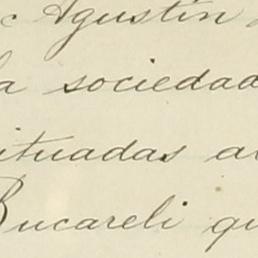 c Agustín
a sociedad
ituadas al
Bucareli qu